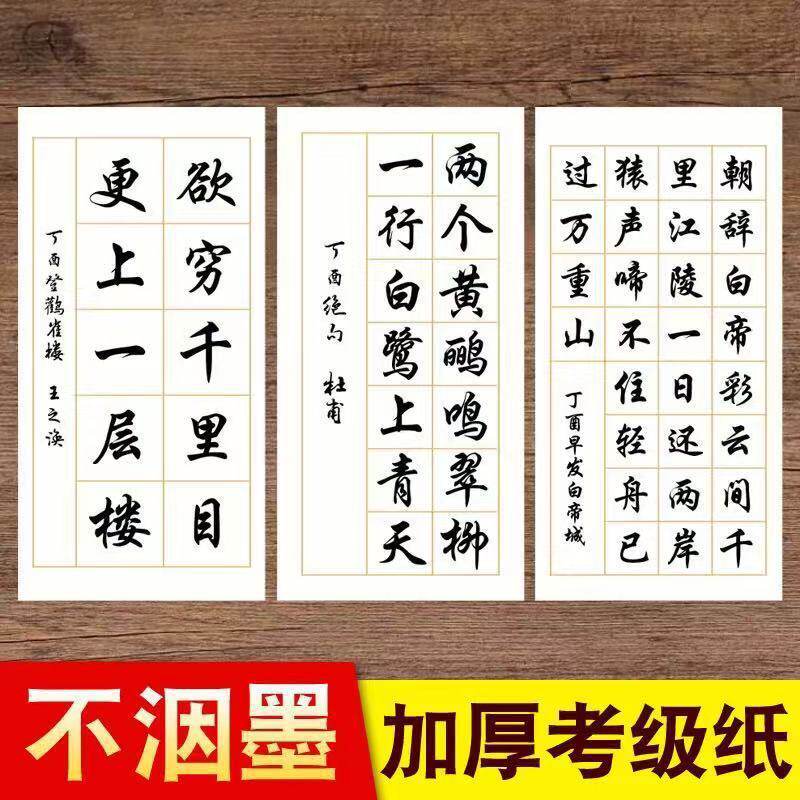 欲穷千里目
更上一层楼
丁酉登鹳雀楼 王之涣
两个黄鹂鸣翠柳
一行白鹭上青天
丁酉绝句 杜甫
朝辞白帝彩云间千
里江陵一日还两岸
猿声啼不住轻舟已
过万重山
丁酉早发白帝城
不洇墨 加厚考级纸